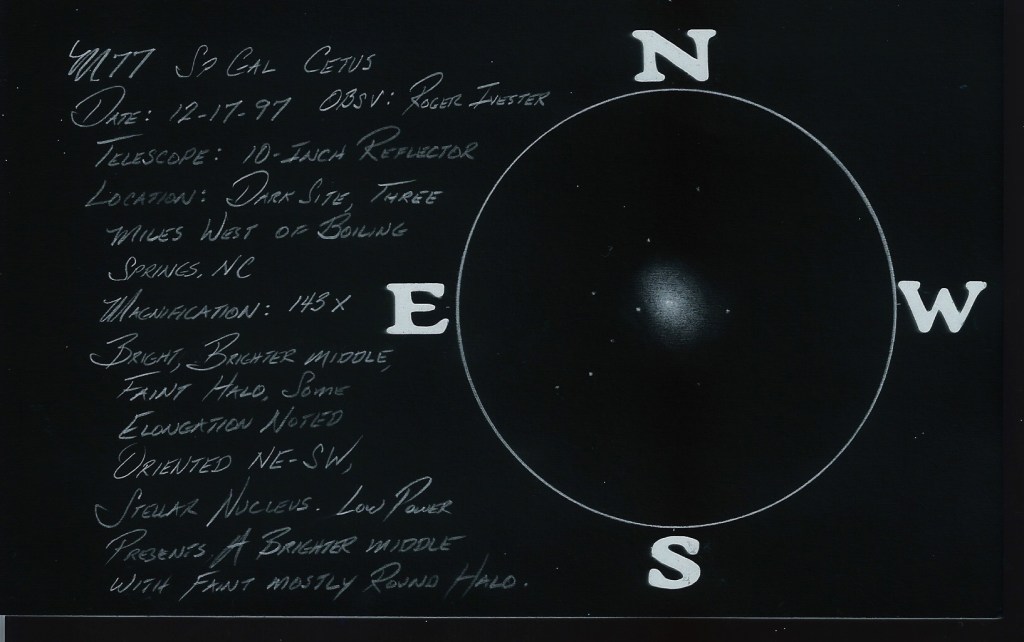 M77 Sp Gal Cetus
Date: 12-17-97 Obsv: Roger Ivester
Telescope: 10-Inch Reflector
Location: Dark Site, Three
miles West of Boiling
Springs, NC
Magnification: 143x
Bright, Brighter middle,
Faint Halo, Some
Elongation Noted
Oriented NE-SW,
Stellar Nucleus. Low Power
Presents A Brighter middle
with Faint mostly Round Halo.
N
E
W
S